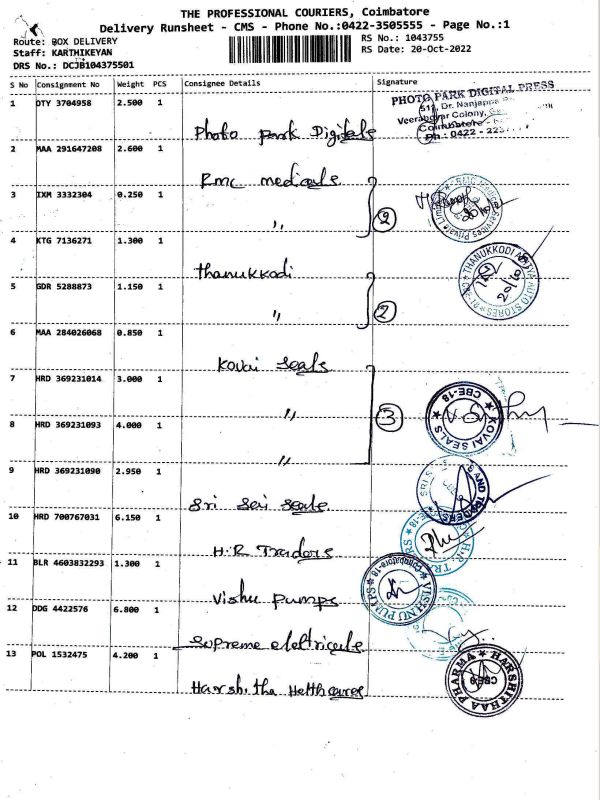 THE PROFESSIONAL COURIERS, Coimbatore
Delivery Runsheet - CMS - Phone No.:0422-3505555 - Page No.:1
Route: BOX DELIVERY
Staff: KARTHIKEYAN
DRS No.: DCJB104375501
RS No.: 1043755
RS Date: 20-Oct-2022
S No Consignment No Weight PCS Consignee Details Signature
1 OTY 3704958 2.500 1 Photo park Digitals
PHOTO PARK DIGITAL PRESS
511, Dr. Nanjappa
Veerabadyar Colony,
Coimbatore
Ph: 0422 - 223
2 MAA 291647208 2.600 1 Rmc medicals
3 IXM 3332304 0.250 1 "
2
RMC Medical Services Private Limited
4 KTG 7136271 1.300 1 Thanukkodi
5 GDR 5288873 1.150 1 "
2
THANUKKODI AUTO STORES
6 MAA 284026068 0.850 1 Kovai Seals
7 HRD 369231014 3.000 1 "
8 HRD 369231093 4.000 1 "
3
KOVAI SEALS CBE-18
9 HRD 369231090 2.950 1 Sri Sai Seals
SRI S AND TRADERS
10 HRD 700767031 6.150 1 H.R Traders
H.R TR
11 BLR 4603832293 1.300 1 Vishu Pumps
VISHNU PUMPS Coimbatore-18
12 DDG 4422576 6.800 1 Supreme eletricals
13 POL 1532475 4.200 1 Harshitha Helthcares
HARSHITHAA PHARMA CBE-9